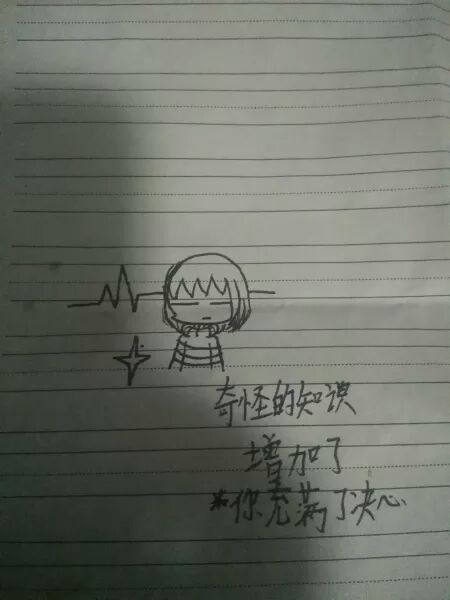 奇怪的知识
增加了
*你充满了决心